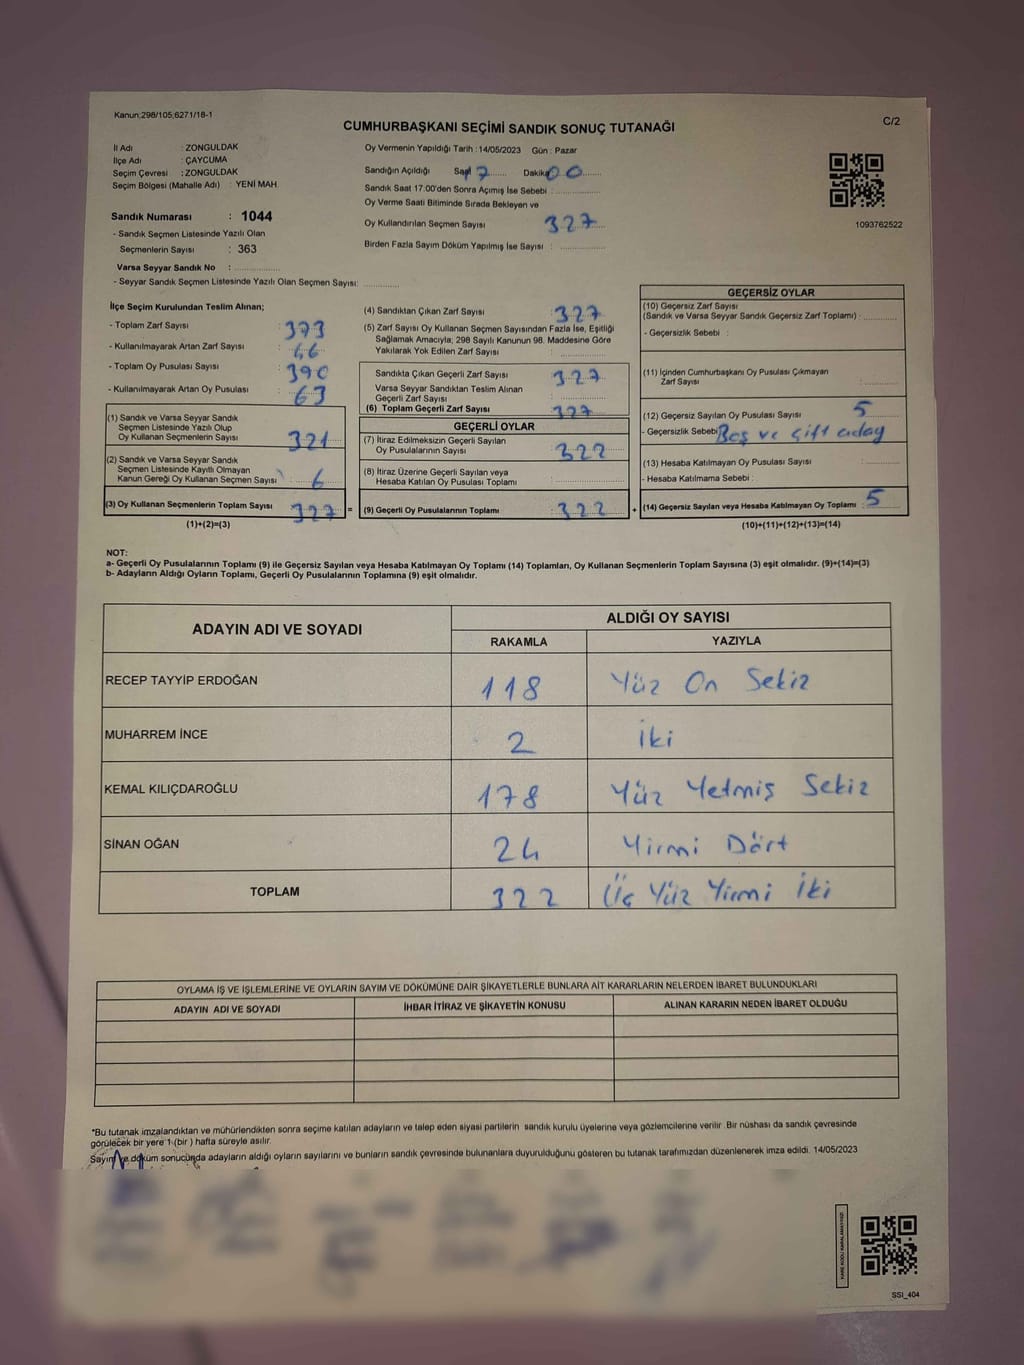 Kanun;298/105;6271/18-1
CUMHURBAŞKANI SEÇİMİ SANDIK SONUÇ TUTANAĞI
C/2
İl Adı : ZONGULDAK
İlçe Adı : ÇAYCUMA
Seçim Çevresi : ZONGULDAK
Seçim Bölgesi (Mahalle Adı) : YENİ MAH.
Sandık Numarası : 1044
- Sandık Seçmen Listesinde Yazılı Olan
Seçmenlerin Sayısı : 363
Varsa Seyyar Sandık No :
- Seyyar Sandık Seçmen Listesinde Yazılı Olan Seçmen Sayısı:
Oy Vermenin Yapıldığı Tarih : 14/05/2023 Gün : Pazar
Sandığın Açıldığı Saat 17 Dakika 00
Sandık Saat 17.00'den Sonra Açımış İse Sebebi :
Oy Verme Saati Bitiminde Sırada Bekleyen ve
Oy Kullandırılan Seçmen Sayısı : 327
Birden Fazla Sayım Döküm Yapılmış İse Sayısı :
1093762522
İlçe Seçim Kurulundan Teslim Alınan;
- Toplam Zarf Sayısı : 373
- Kullanılmayarak Artan Zarf Sayısı : 46
- Toplam Oy Pusulası Sayısı : 390
- Kullanılmayarak Artan Oy Pusulası : 63
(1) Sandık ve Varsa Seyyar Sandık
Seçmen Listesinde Yazılı Olup
Oy Kullanan Seçmenlerin Sayısı : 321
(2) Sandık ve Varsa Seyyar Sandık
Seçmen Listesinde Kayıtlı Olmayan
Kanun Gereği Oy Kullanan Seçmen Sayısı : 6
(3) Oy Kullanan Seçmenlerin Toplam Sayısı : 327 =
(1)+(2)=(3)
(4) Sandıktan Çıkan Zarf Sayısı : 327
(5) Zarf Sayısı Oy Kullanan Seçmen Sayısından Fazla İse, Eşitliği
Sağlamak Amacıyla; 298 Sayılı Kanunun 98. Maddesine Göre
Yakılarak Yok Edilen Zarf Sayısı :
Sandıkta Çıkan Geçerli Zarf Sayısı : 327
Varsa Seyyar Sandıktan Teslim Alınan
Geçerli Zarf Sayısı :
(6) Toplam Geçerli Zarf Sayısı : 327
GEÇERLİ OYLAR
(7) İtiraz Edilmeksizin Geçerli Sayılan
Oy Pusulalarının Sayısı : 322
(8) İtiraz Üzerine Geçerli Sayılan veya
Hesaba Katılan Oy Pusulası Toplamı :
(9) Geçerli Oy Pusulalarının Toplamı : 322 +
GEÇERSİZ OYLAR
(10) Geçersiz Zarf Sayısı
(Sandık ve Varsa Seyyar Sandık Geçersiz Zarf Toplamı) :
- Geçersizlik Sebebi :
(11) İçinden Cumhurbaşkanı Oy Pusulası Çıkmayan
Zarf Sayısı :
(12) Geçersiz Sayılan Oy Pusulası Sayısı : 5
- Geçersizlik Sebebi Boş ve çift aday
(13) Hesaba Katılmayan Oy Pusulası Sayısı :
- Hesaba Katılmama Sebebi :
(14) Geçersiz Sayılan veya Hesaba Katılmayan Oy Toplamı : 5
(10)+(11)+(12)+(13)=(14)
NOT:
a- Geçerli Oy Pusulalarının Toplamı (9) ile Geçersiz Sayılan veya Hesaba Katılmayan Oy Toplamı (14) Toplamları, Oy Kullanan Seçmenlerin Toplam Sayısına (3) eşit olmalıdır. (9)+(14)=(3)
b- Adayların Aldığı Oyların Toplamı, Geçerli Oy Pusulalarının Toplamına (9) eşit olmalıdır.
ADAYIN ADI VE SOYADI
ALDIĞI OY SAYISI
RAKAMLA YAZIYLA
RECEP TAYYİP ERDOĞAN 118 Yüz On Sekiz
MUHARREM İNCE 2 İki
KEMAL KILIÇDAROĞLU 178 Yüz Yetmiş Sekiz
SİNAN OĞAN 24 Yirmi Dört
TOPLAM 322 Üç Yüz Yirmi İki
OYLAMA İŞ VE İŞLEMLERİNE VE OYLARIN SAYIM VE DÖKÜMÜNE DAİR ŞİKAYETLERLE BUNLARA AİT KARARLARIN NELERDEN İBARET BULUNDUKLARI
ADAYIN ADI VE SOYADI İHBAR İTİRAZ VE ŞİKAYETİN KONUSU ALINAN KARARIN NEDEN İBARET OLDUĞU
*Bu tutanak imzalandıktan ve mühürlendikten sonra seçime katılan adayların ve talep eden siyasi partilerin sandık kurulu üyelerine veya gözlemcilerine verilir. Bir nüshası da sandık çevresinde
görülecek bir yere 1 (bir ) hafta süreyle asılır.
Sayım ve döküm sonucunda adayların aldığı oyların sayılarını ve bunların sandık çevresinde bulunanlara duyurulduğunu gösteren bu tutanak tarafımızdan düzenlenerek imza edildi. 14/05/2023
SSI_404